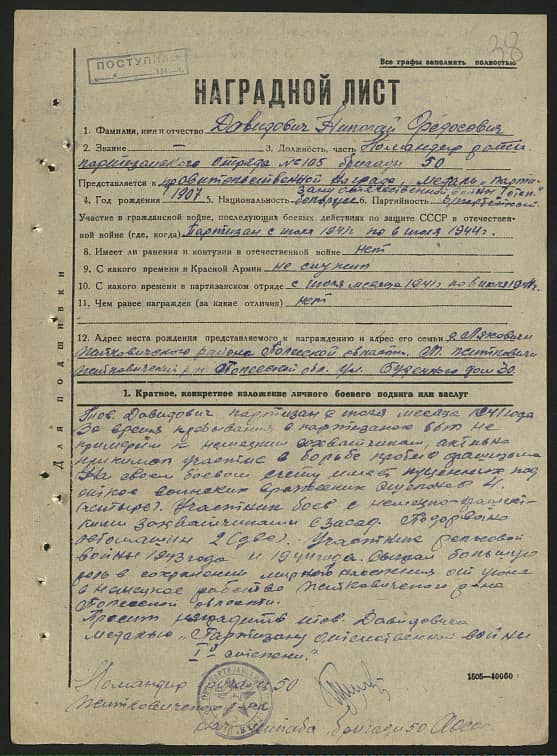 38
Все графы заполнять полностью
ПОСТУПИЛО
НАГРАДНОЙ ЛИСТ
1. Фамилия, имя и отчество Давидович Николай Федосович
2. Звание — 3. Должность, часть Командир роты
партизанского отряда № 105 бригады 50
Представляется к правительственной награде медаль „Парти-
зану отечественной войны I степ."
4. Год рождения 1907 5. Национальность белорус 6. Партийность беспартийный
Участие в гражданской войне, последующих боевых действиях по защите СССР и отечествен-
ной войне (где, когда) Партизан с июля 1941 г. по 6 июля 1944 г.
8. Имеет ли ранения и контузии в отечественной войне нет
9. С какого времени в Красной Армии не служил
10. С какого времени в партизанском отряде с июля месяца 1941 г. по 6 июля 1944 г.
11. Чем ранее награжден (за какие отличия) нет
12. Адрес места рождения представляемого к награждению и адрес его семьи д. Ляховичи
Житковичского района Полесской области. М. Житковичи
Житковичский р-н Полесской обл. ул. Буденного дом 30.
Для подшивки
1. Краткое, конкретное изложение личного боевого подвига или заслуг
Тов. Давидович партизан с июля месяца 1941 года
За время пребывания в партизанах был не
примирим к немецким захватчикам, активно
принимал участие в борьбе против фашизма
На своем боевом счету имеет пущенных под
откос воинских вражеских эшелонов 4
(четыре). Участник боев с немецко-фашист-
кими захватчиками с засад. Подорвано
автомашин 2 (две). Участник рельсовой
войны 1943 года и 1944 года. Сыграл большую
роль в сохранении мирного населения от угона
в немецкое рабство Житковичского р-на
Полесской области.
Просим наградить тов. Давидовича
медалью „Партизану отечественной войны
I-й степени."
1505—40000
Командир 50
Житковичского р-на
штаба бригады 50